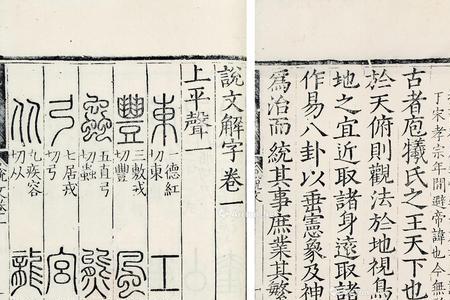 丁宋孝宗年間避帝諱也今無
古者庖犧氏之王天下也
於天俯則觀法於地視鳥
地之宜近取諸身遠取諸
作易八卦以垂憲象及神
爲治而統其事庶業其繁
說文解字卷一
上平聲一
東 一德紅切東 工
豐 三敷戎切豐 風
蟲 五直弓切蟲 熊
弓 七居戎切 宮
从 九疾容切从 龍